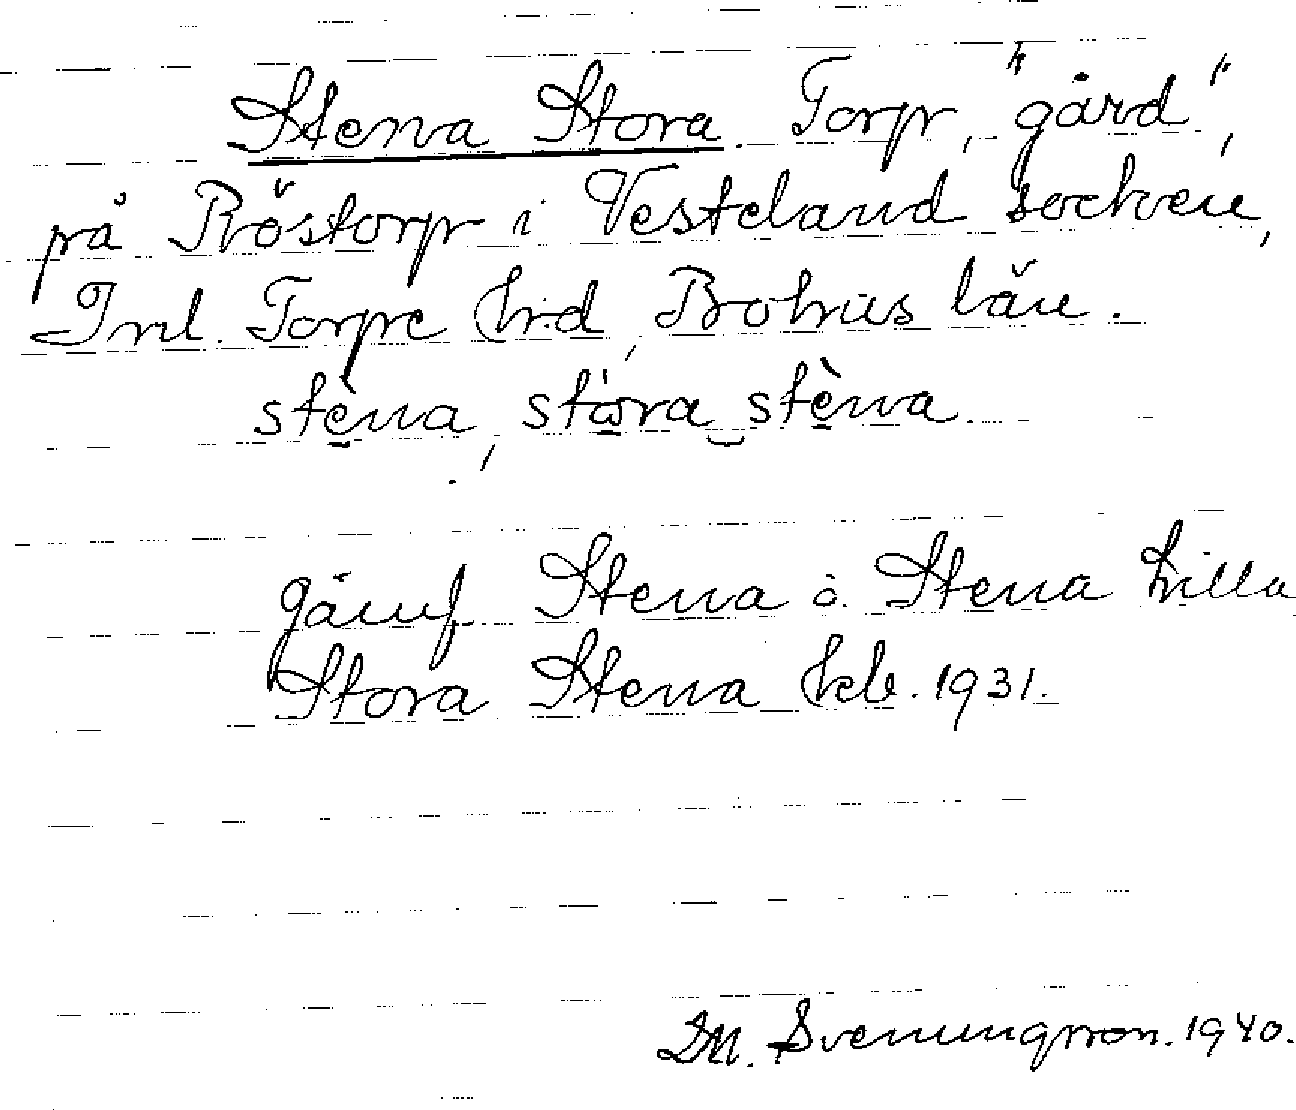 Stena Stora. Torp, "gård",
på Röstorp i Vesteland socken,
Inl. Torpe hrd, Bohus län.
stèna, stòra stèna.
jämf. Stena o. Stena Lilla
Stora Stena kb. 1931.
M. Svenungsson. 1940.